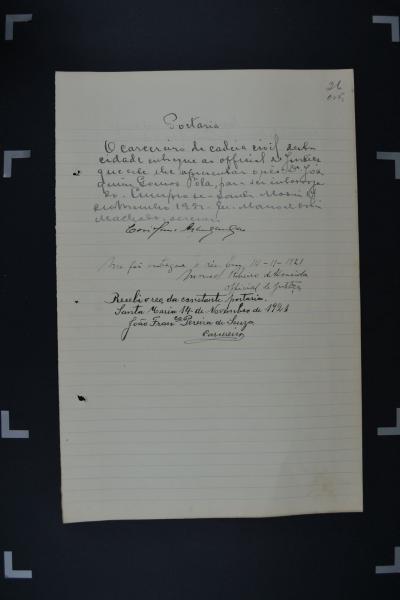 26
Portaria
O carcereiro da cadeia civil desta
cidade entregue ao official de Justiça
que este lhe apresentar o réo Joa
quim Gomes Pola, para ser interroga
do. Cumpra-se. Santa Maria, 14
Novembro 1921. Eu, Mario
Machado, escrivão
Me foi entregue o réo Em, 14-11-1921
Ribeiro de Almeida
Official de Justiça
Recebi o réo da constante portaria.
Santa Maria 14 de Novembro de 1921
João Fran.co Pereira de Souza
Carcereiro